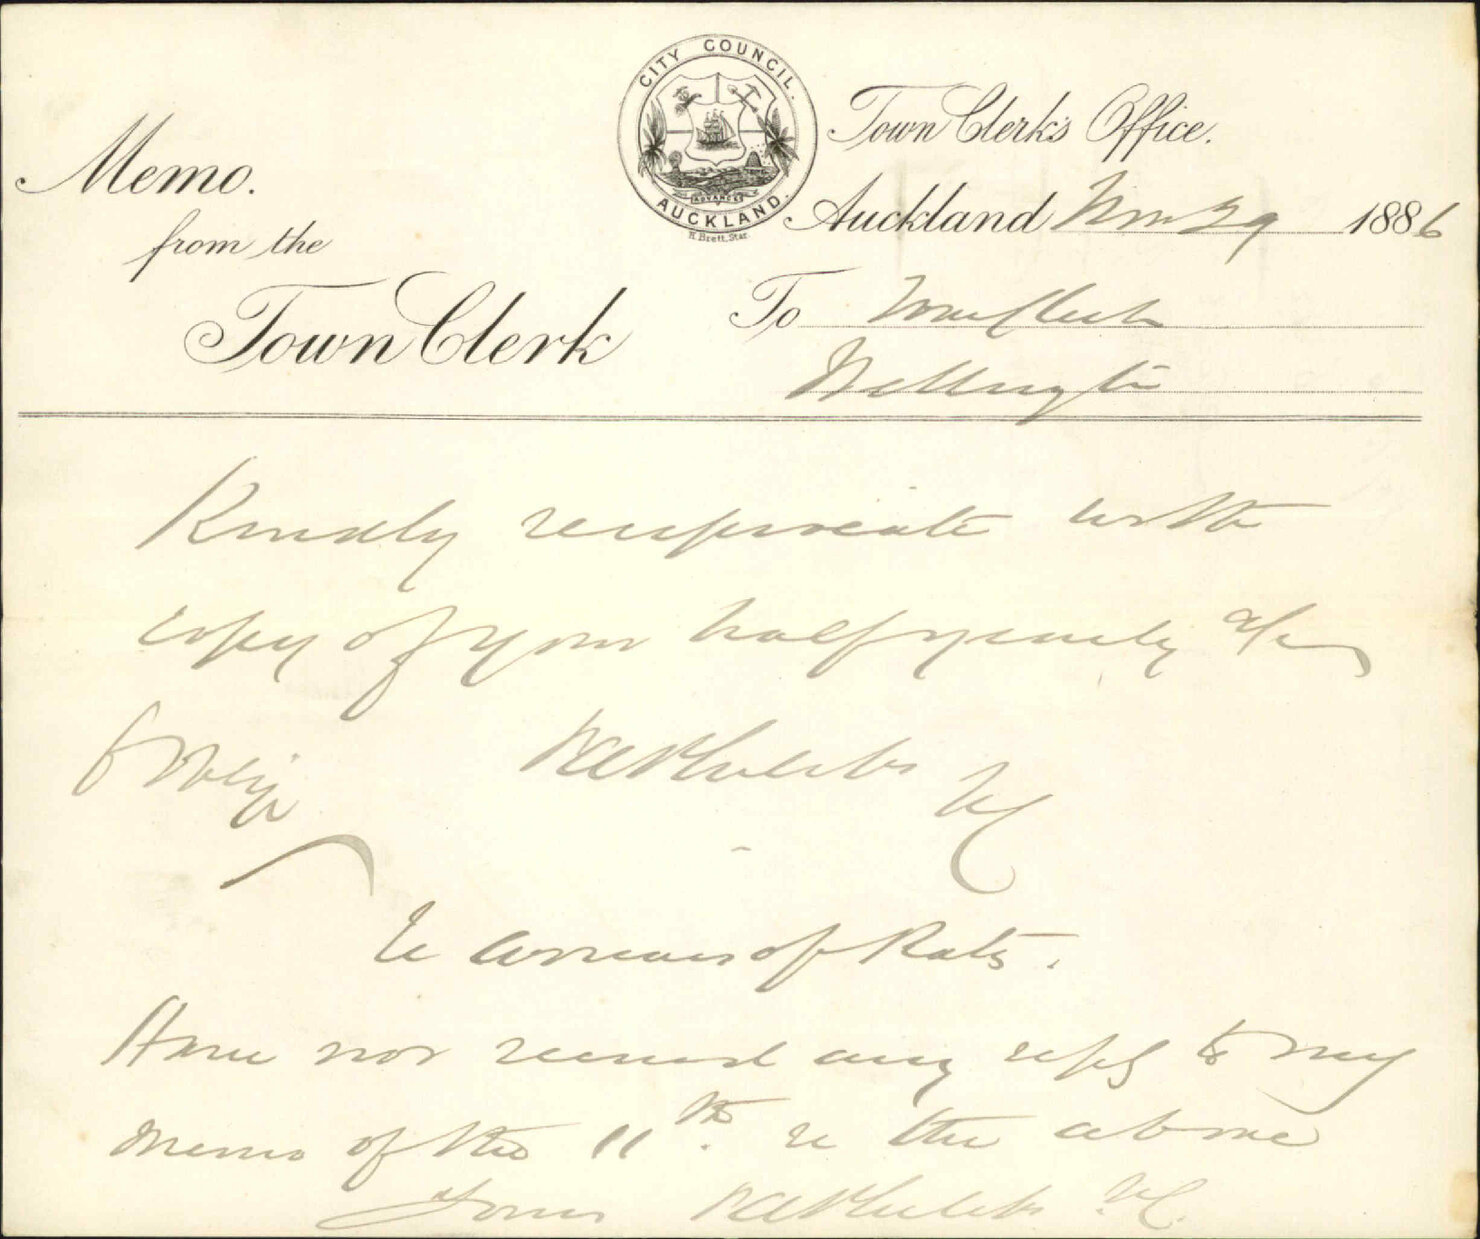 CITY COUNCIL.
ADVANCE
AUCKLAND.
H. Brett, Star
Memo.
from the
Town Clerk
Town Clerk's Office.
Auckland Nov 29 1886
To Town Clerk
Wellington
Kindly reciprocate with
copy of your half yearly a/cs
& oblige
TC
re Arrears of Rates.
Have not received any reply to my
memo of the 11th. re the above
Yours TC.